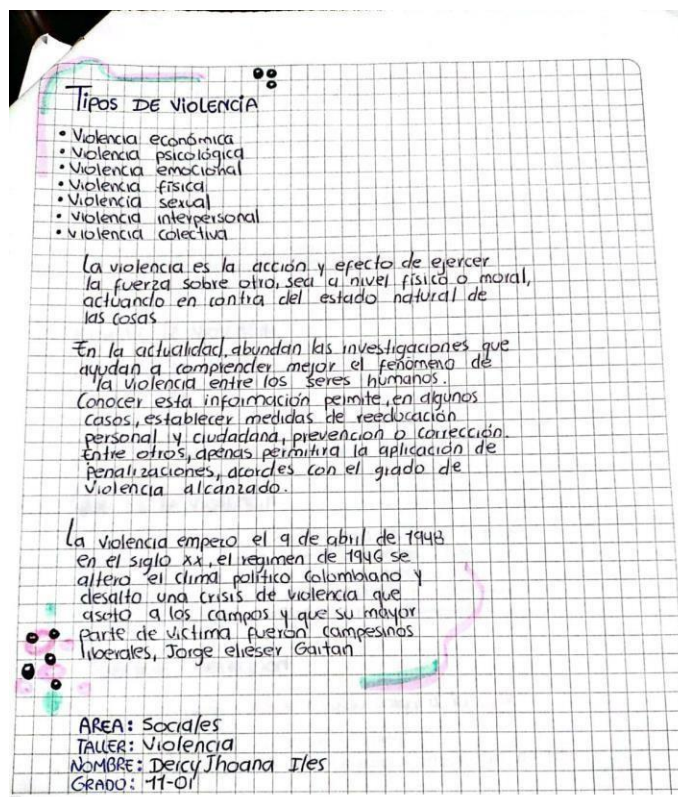 TIPOS DE VIOLENCIA
• Violencia económica
• Violencia psicológica
• Violencia emocional
• Violencia física
• Violencia sexual
• Violencia interpersonal
• violencia colectiva
La violencia es la acción y efecto de ejercer
la fuerza sobre otro, sea a nivel físico o moral,
actuando en contra del estado natural de
las cosas
En la actualidad, abundan las investigaciones que
ayudan a comprender mejor el fenómeno de
la violencia entre los seres humanos.
Conocer esta información permite, en algunos
casos, establecer medidas de reeducación
personal y ciudadana, prevencion o corrección.
Entre otros, apenas permitira la aplicación de
Penalizaciones, acordes con el grado de
violencia alcanzado.
La violencia empezo el 9 de abril de 1948
en el siglo xx, el regimen de 1946 se
altero el clima politico colombiano y
desalto una crisis de violencia que
asoto a los campos y que su mayor
parte de victima fueron campesinos
liberales, Jorge elieser Gaitan
AREA: Sociales
TALLER: Violencia
NOMBRE: Deicy Jhoana Iles
GRADO: 11-01